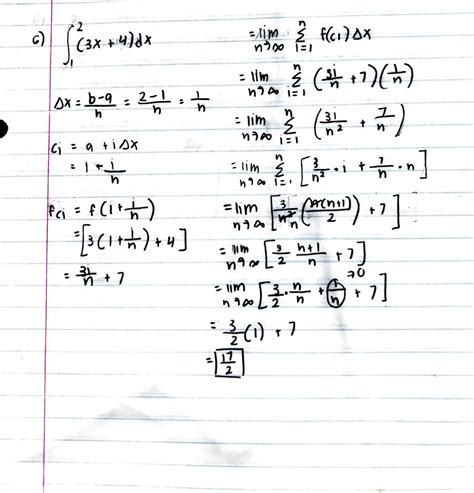 c) ∫₁² (3x + 4)dx
Δx = b-a/n = 2-1/n = 1/n
cᵢ = a + iΔx
= 1 + i/n
f cᵢ = f(1 + i/n)
= [3(1 + i/n) + 4]
= 3i/n + 7
= lim n→∞ Σ i=1 n f(cᵢ)Δx
= lim n→∞ Σ i=1 n (3i/n + 7)(1/n)
= lim n→∞ Σ i=1 n (3i/n² + 7/n)
= lim n→∞ Σ i=1 n [3/n² · i + 7/n · n]
= lim n→∞ [3/n² (n(n+1)/2) + 7]
= lim n→∞ [3/2 n+1/n + 7]
= lim n→∞ [3/2 · n/n + 1/n →0 + 7]
= 3/2 (1) + 7
= 17/2